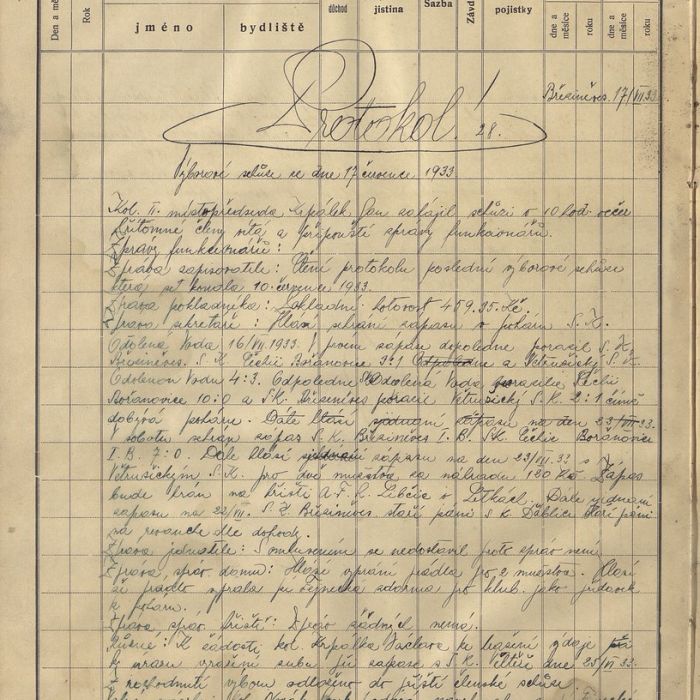 Den a mě
Rok
jméno
bydliště
důchod
jistina
Sazba
Závd
pojistky
dne a měsíce
roku
dne a měsíce
roku
Březiněves 17/VII 33
Protokol! 28.
Výborové schůze ze dne 17 července 1933
Kol. II. místopředseda Krpálek Jan zahájil schůzi v 10 hod. večer
Přítomné členy vítá a připouští zprávy funkcionářů.
Zprávy funkcionářů:
Zpráva zapisovatele: Čtení protokolu poslední výborové schůze
která se konala 10. července 1933.
Zpráva pokladníka: Základní hotovost 459.35 Kč.
Zpráva sekretáře: Hlásí sehrání zápasu o pohár S.K.
Odolena Voda 16/VII 1933. V prvém zápasu dopoledne porazil S.K.
Březiněves S.K. Čechii Bořanovice 3:1 a Vetrušický S.K.
Odolenou Vodu 4:3. Odpoledne Odolena Voda porazila Čechii
Bořanovice 10:0 a S.K. Březiněves porazil Vetrušický S.K. 2:1 čímž
dobývá poháru. Dále hlásí sjednání zápasu na den 23/VII 33.
V sobotu sehrán zápas S.K. Březiněves I.B. SK Čechie Bořanovice
I.B. 7:0. Dále hlásí sjednání zápasu na den 23/VII. 33 s
Vetrušickým S.K. pro dvě mužstva za náhradu 120 Kč. Zápas
bude hrán na hřišti A.F.K. Libčice v Letkách. Dále sjednán
zápas na 22/VII. S.K. Březiněves staří páni S.K. Ďáblice staří páni
na revanche dle dohody.
Zpráva jednatele: S omluvením se nedostavil proto zpráv není
Zpráva správ. domu: Hlásí vyprání prádla pro 2 mužstva. Hlásí
že prádlo vyprala pí zdarma pro klub jako přídavek
k poháru.
Zpráva správ. hřiště: Zpráv žádných nemá.
Různé: K žádosti kol. Krpálka Václava ke hrazení výdaje
za zubu při zápase s S.K. dne 25/VI 33.
rozhodnutí výboru odloženo do příští členské schůze